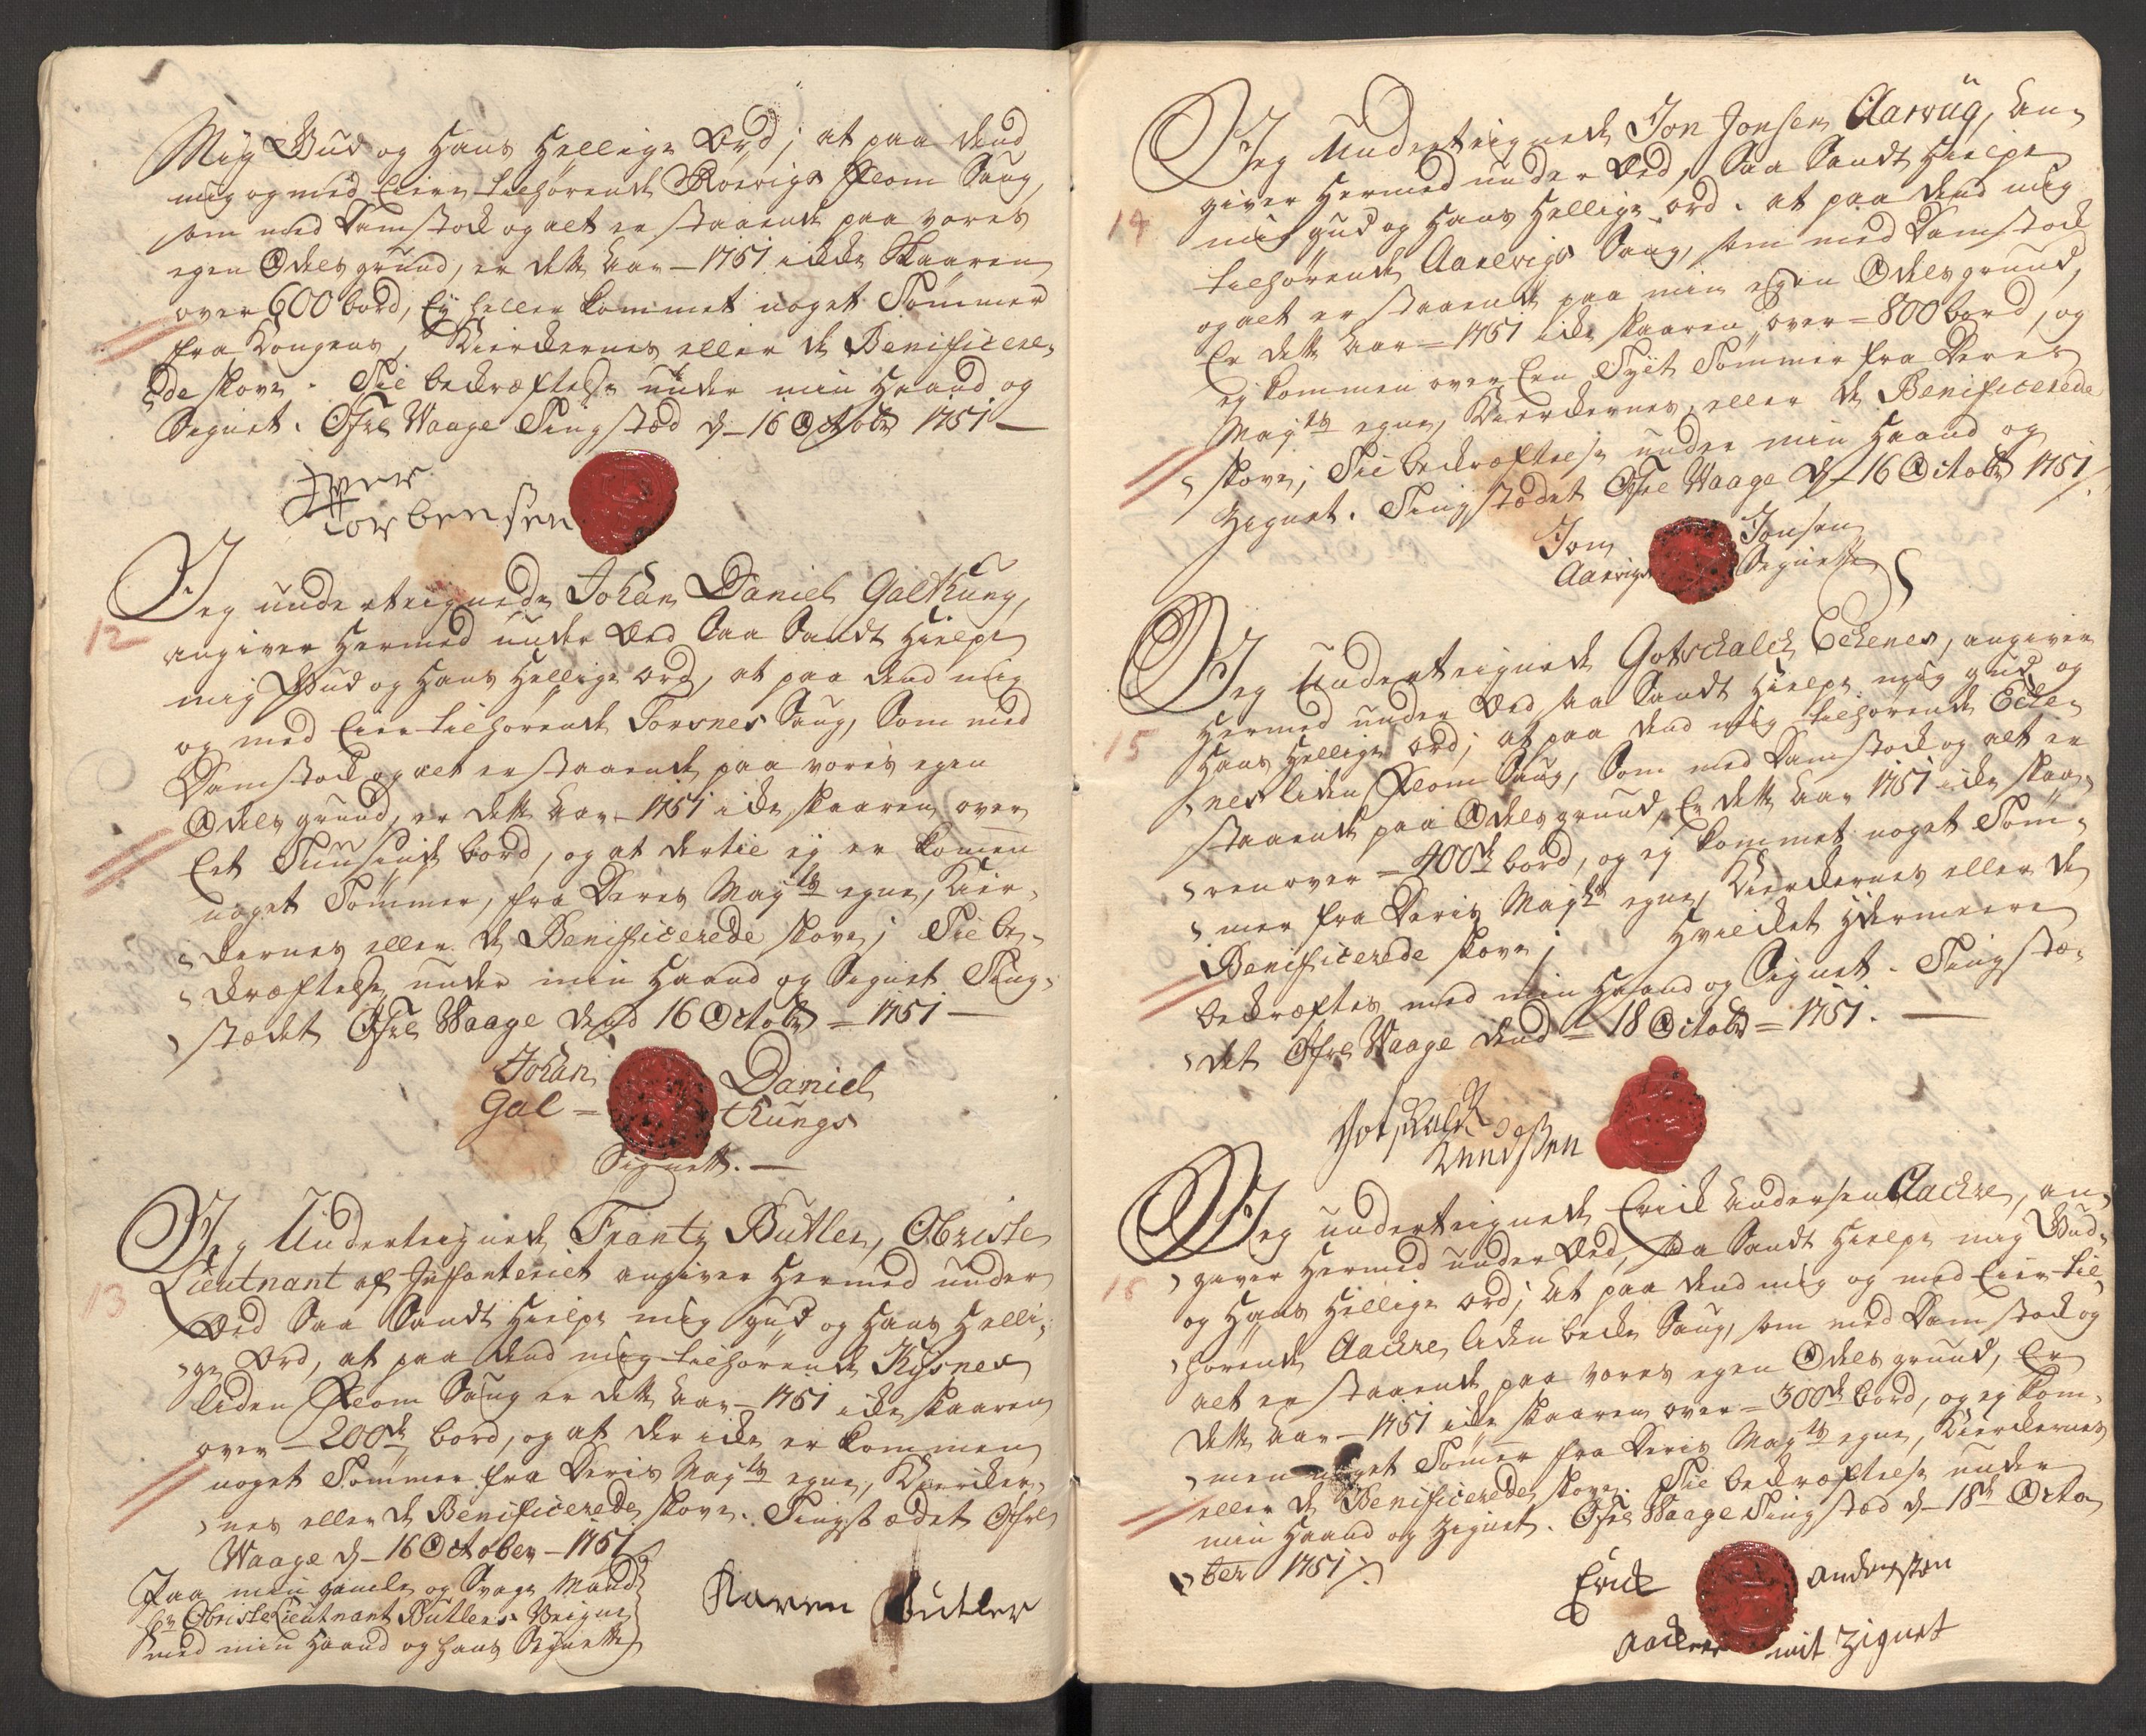 Mig Gud og Hans Hellige Ord; at paa dend
mig og med Eiere tilhørende Roevigs Flom Saug,
som med Damstock og alt er staaende paa vores
egen Odels grund, er dette Aar – 1751 ickke Skaaren
over 600 bord, Ey heller kommet noget Tømmer
fra Kongens, Kierckernes eller de Benificere-
de skove. Til bekræftelse under min Haand og
Segnet. Øfre Waage Tingstæd d – 16 Octobr 1751 –
Iver
Torbensen
12
Jeg underteignede Johan Daniel Galthung,
angiver Hermed under Eed Saa Sandt Hielpe
mig Gud og Hans Hellige ord, at paa dend mig
og med Eiere tilhørende Torsnes Saug, Som med
Damstock og alt er staaende paa vores egen
Odels grund, er dette Aar – 1751 icke skaaren over
Eet Tuusinde bord, og at dertil ej er komen
noget Tømmer, fra Deres Mayts egne, Kier-
kernes eller de Benificerede skove; Til be-
kræftelse under min Haand og Segnet Ting-
stædet Øfre Waage dend 16 Octobr = 1751 –
Johan Daniel
Gal = thungs
Signette. –
13
Jeg Underteignede Frantz Butler, Obriste
Lieutnant af Infanteriet angiver Hermed under
Eed Saa Sandt Hielpe mig gud og Hans Helli-
ge Ord, at paa dend mig tilhørende Kysnes
liden Flom Saug er dette Aar – 1751 icke skaaren
over – 200de bord, og at der icke er kommen
noget Tømmer fra Deris Mayts egne, Kiercker-
nes eller de Benificerede skove. Tingstædet Øfre
Waage d – 16 October – 1751
Paa min gamle og Svage Mand
hr ObristeLieutnant Butlers Veigne
med min Haand og Hans Segnette
Karen Butler
14
Jeg Underteignede Jon Jonsen Aarvig, an-
giver Hermed under Eed, Saa Sandt Hielpe
mig gud og Hans Hellige ord. at paa dend mig
tilhørende Aarevigs Saug, som med Damstock
og alt er staaende paa min egen Odels grund,
Er dette Aar – 1751 icke skaaren over = 800 bord, og
ej kommen over Een Tylt Tømmer fra Deres
Mayts egne, Kierckernes, eller de Benificerede
skove; Til bekræftelse under min Haand og
Zegnet. Tingstædet Øfre Waage d – 16 Octobr 1751
Jon Jonsen
Aarvigs Segnette
15
Jeg Underteignede Gotschalch Echenes, angiver
Hermed under Eed saa Sandt Hielpe mig gud og
Hans Hellige Ord; at paa dend mig tilhørende Eche-
nes liden Flom Saug, Som med Damstock og alt er
staaende paa Odels grund, Er dette Aar 1751 icke skaa-
ren over = 400de bord, og ej kommet noget Tøm-
mer fra Deris Mayts egne, Kierckernes eller de
Benificerede skove; Hvilcket Ydermeere
bekræftes med min Haand og Signet. Tingstæ-
det Øfre Waage dend = 18 Octobr = 1751. –
Gotschalck
Knudssen
16
Jeg underteignede Erick Andersen Aackre, an-
giver Hermed under Eed, saa Sandt Hielpe mig Gud
og Hans Hellige ord; At paa dend mig og med Eiere til-
hørende Aackre liden becke Saug, som med Damstock og
alt er staaende paa vores egen Odels grund, Er
dette Aar – 1751 icke skaaren over = 300de bord, og ej kom-
men noget Tømer fra Deris Mayts egne, Kierckernes
eller de Benificerede skove. Til bekræftelse under
min Haand og Zignet. Øfre Waage Tingstæd d – 18de Octo
ber 1751
Erick anderssen
Aackre mit Zignet